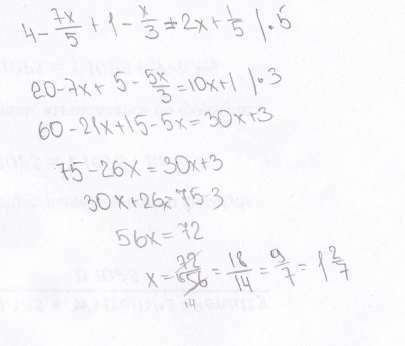 4 - 7x/5 + 1 - x/3 = 2x + 1/5 | · 5
20 - 7x + 5 - 5x/3 = 10x + 1 | · 3
60 - 21x + 15 - 5x = 30x + 3
75 - 26x = 30x + 3
30x + 26x = 75 - 3
56x = 72
x = 72/56 = 18/14 = 9/7 = 1 2/7
14